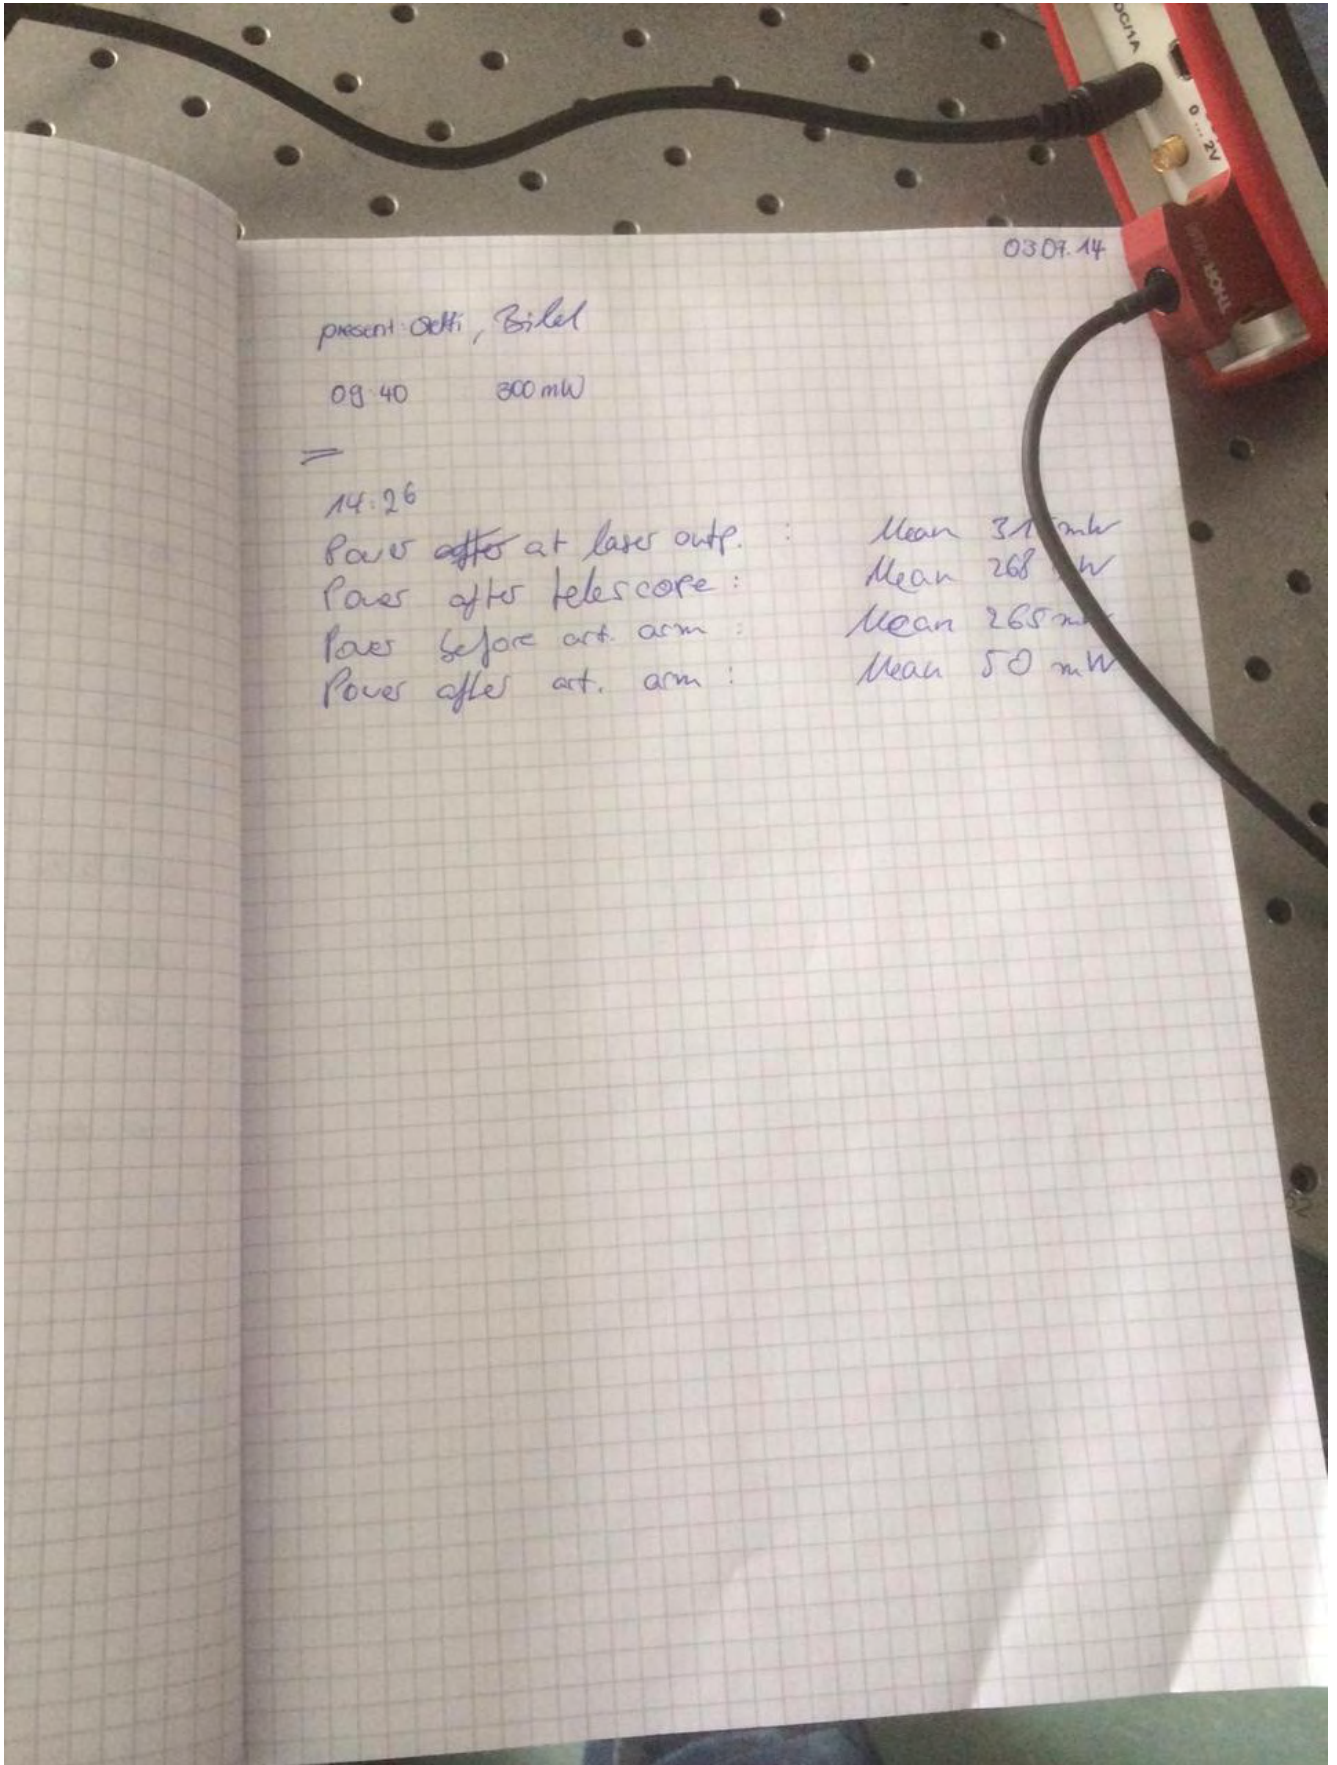 DC/1A
0 ... 2V
THOR
03.09.14
present: Oetti, Bilel
09:40 300 mW
14:26
Power after at laser outp. : Mean 315 mW
Power after telescope : Mean 268 mW
Power before art. arm : Mean 265 mW
Power after art. arm : Mean 50 mW
82